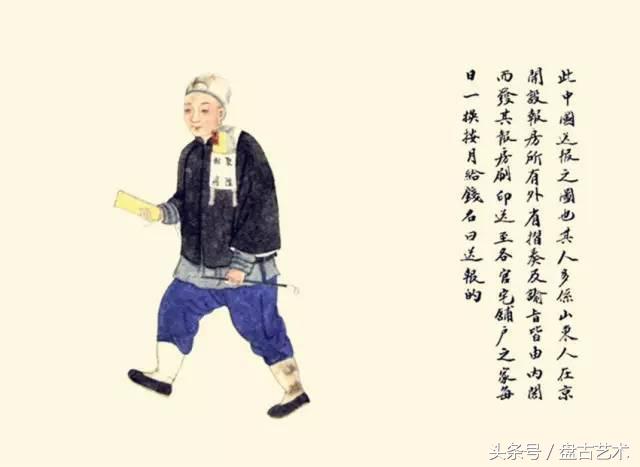 此中國送报之圖也其人多係山東人在京
開設報房所有外省摺奏及諭旨皆由内閣
而發其报房刷印送至各官宅舖户之家每
日一换按月给錢名曰送報的
头条号／盘古艺术